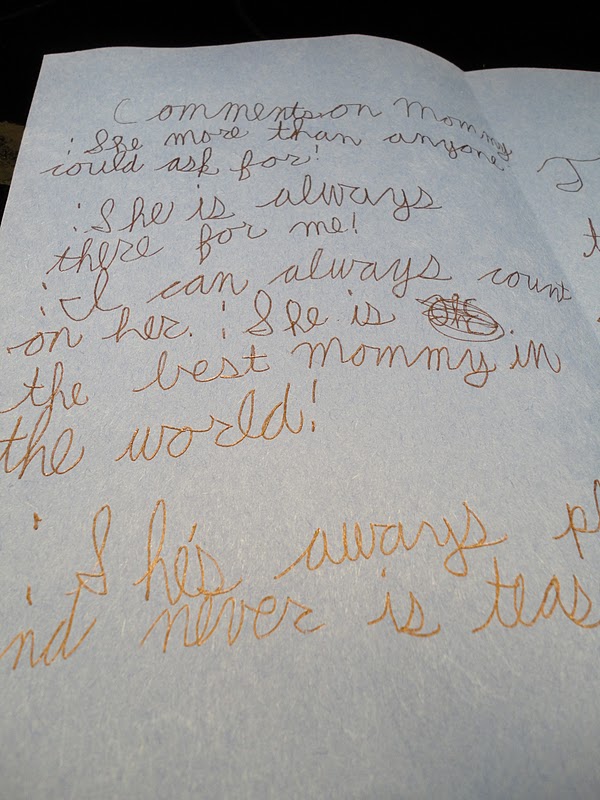 Comments on Mommy
: She more than anyone
could ask for!
: She is always
there for me!
: I can always count
on her. : She is
the best mommy in
the world!
: She's aways p
nd never is teas
T
t